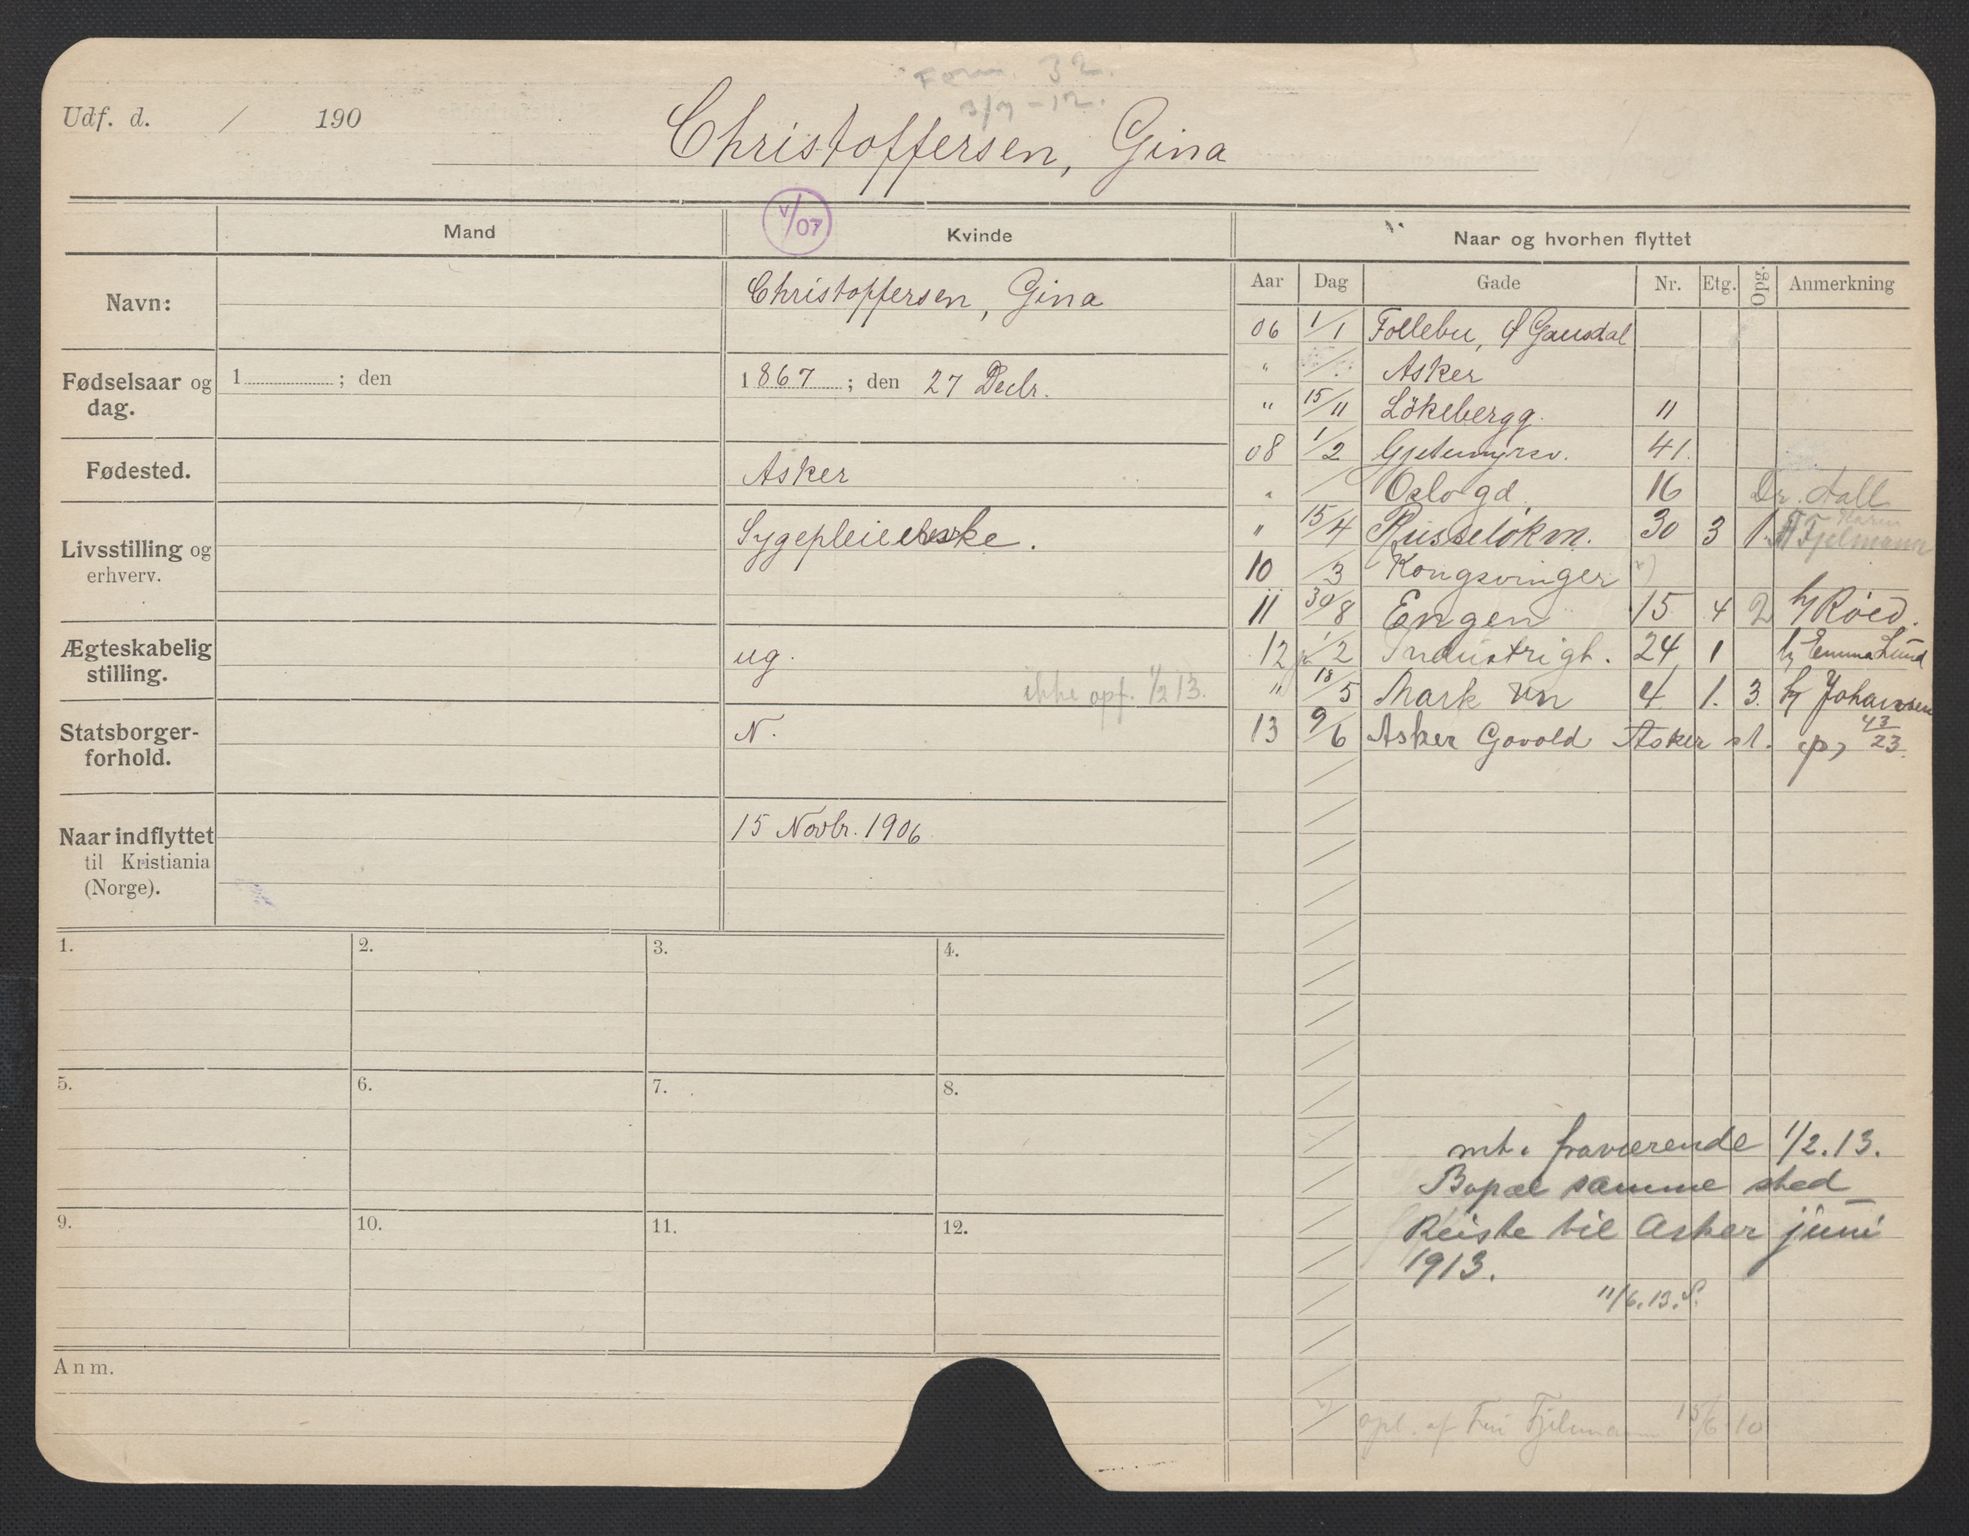 Form. 32.
3/7-12.
Udf. d. / 190
Christoffersen, Gina
Mand
V/07
Kvinde
Naar og hvorhen flyttet
Aar Dag Gade Nr. Etg. Opg. Anmerkning
Navn:
Christoffersen, Gina
Fødselsaar og dag.
1 ; den
1867 ; den 27 Decbr.
Fødested.
Asker
Livsstilling og erhverv.
Sygepleierske.
Ægteskabelig stilling.
ug.
ikke opf. 1/2 13.
Statsborger-forhold.
N.
Naar indflyttet til Kristiania (Norge).
15 Novbr. 1906
06 1/1 Follebu, Ø Gausdal
" / Asker
" 15/11 Lökebergg. 11
08 1/2 Gjetemyrsv. 41.
" / Oslogd. 16 Dr. Aall
" 15/4 Russeløkvn. 30 3 1. Karen Fjelmann
10 /3 Kongsvinger v)
11 30/8 Engen 15 4 2 h/ Røed.
12 1/2 Industrigt. 24 1 h/ Emma Lund
" 18/5 Markvn 4 1. 3. h/ Johansen
13 9/6 Asker Govold Asker st. 43/23.
1. 2. 3. 4.
5. 6. 7. 8.
9. 10. 11. 12.
mt. fraværende 1/2.13.
Bopæl samme sted
Reiste til Asker juni
1913.
11/6.13.S.
Anm.
v) opl. af Frk Fjelmann 15/6 10